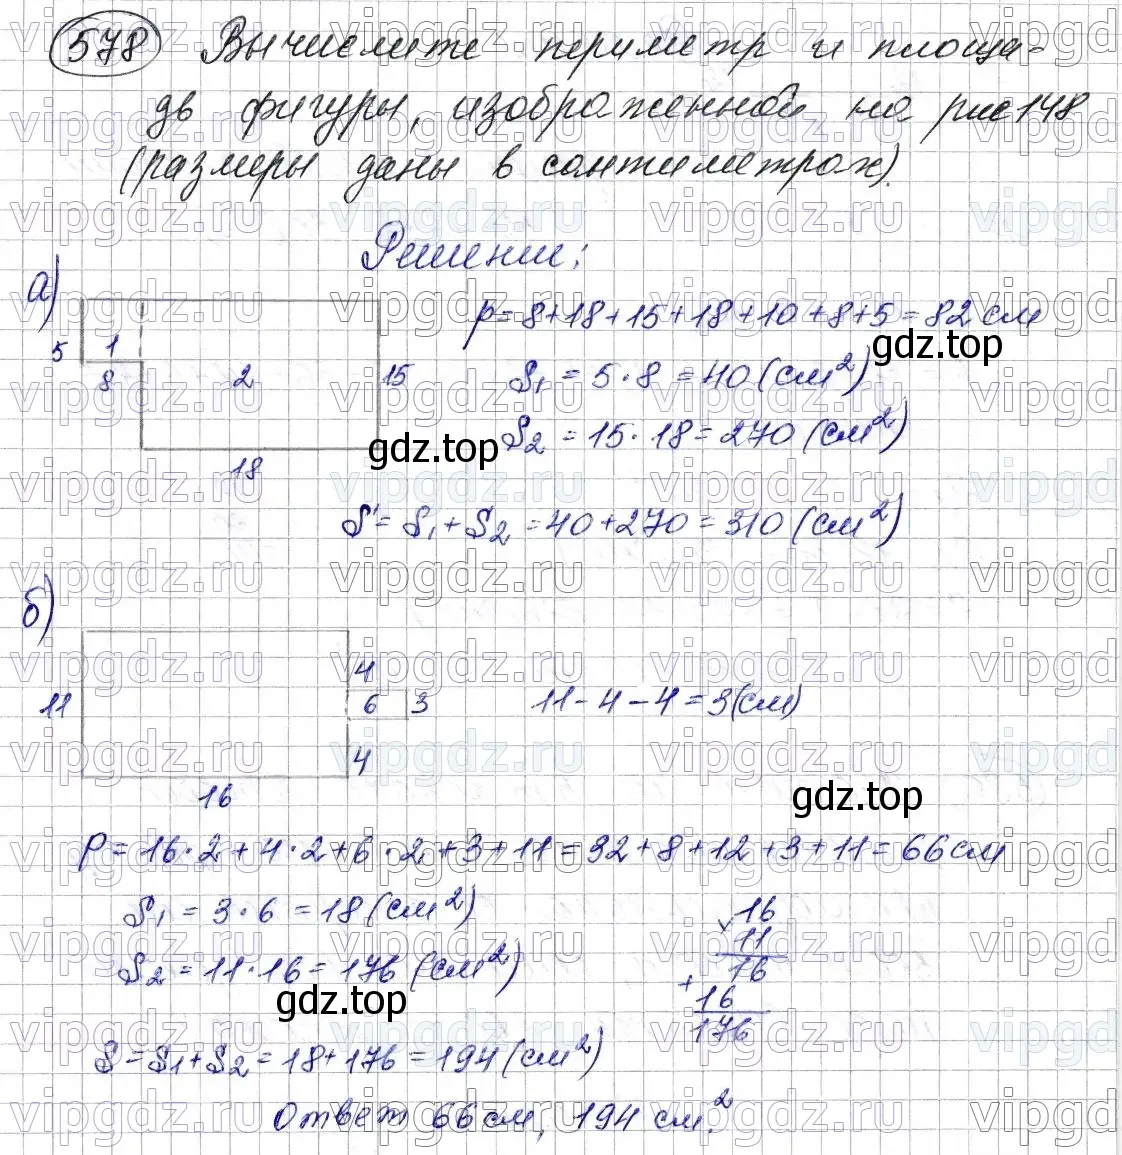 578 Вычислите периметр и площа-
дь фигуры, изображенной на рис 148
(размеры даны в сантиметрах).
Решение:
а)
5 1 8 2 15 18
P = 8+18+15+18+10+8+5 = 82 см
gdz.top
S₁ = 5·8 = 40 (см²)
S₂ = 15·18 = 270 (см²)
gdz.top
S = S₁ + S₂ = 40+270 = 310 (см²)
б)
11 4 6 3 4 16
11 - 4 - 4 = 3 (см)
gdz.top
P = 16·2 + 4·2 + 6·2 + 3 + 11 = 32 + 8 + 12 + 3 + 11 = 66 см
S₁ = 3·6 = 18 (см²)
S₂ = 11·16 = 176 (см²)
gdz.top
×16
11
16
+
16
176
S = S₁ + S₂ = 18 + 176 = 194 (см²)
Ответ 66 см, 194 см².
vipgdz.ru